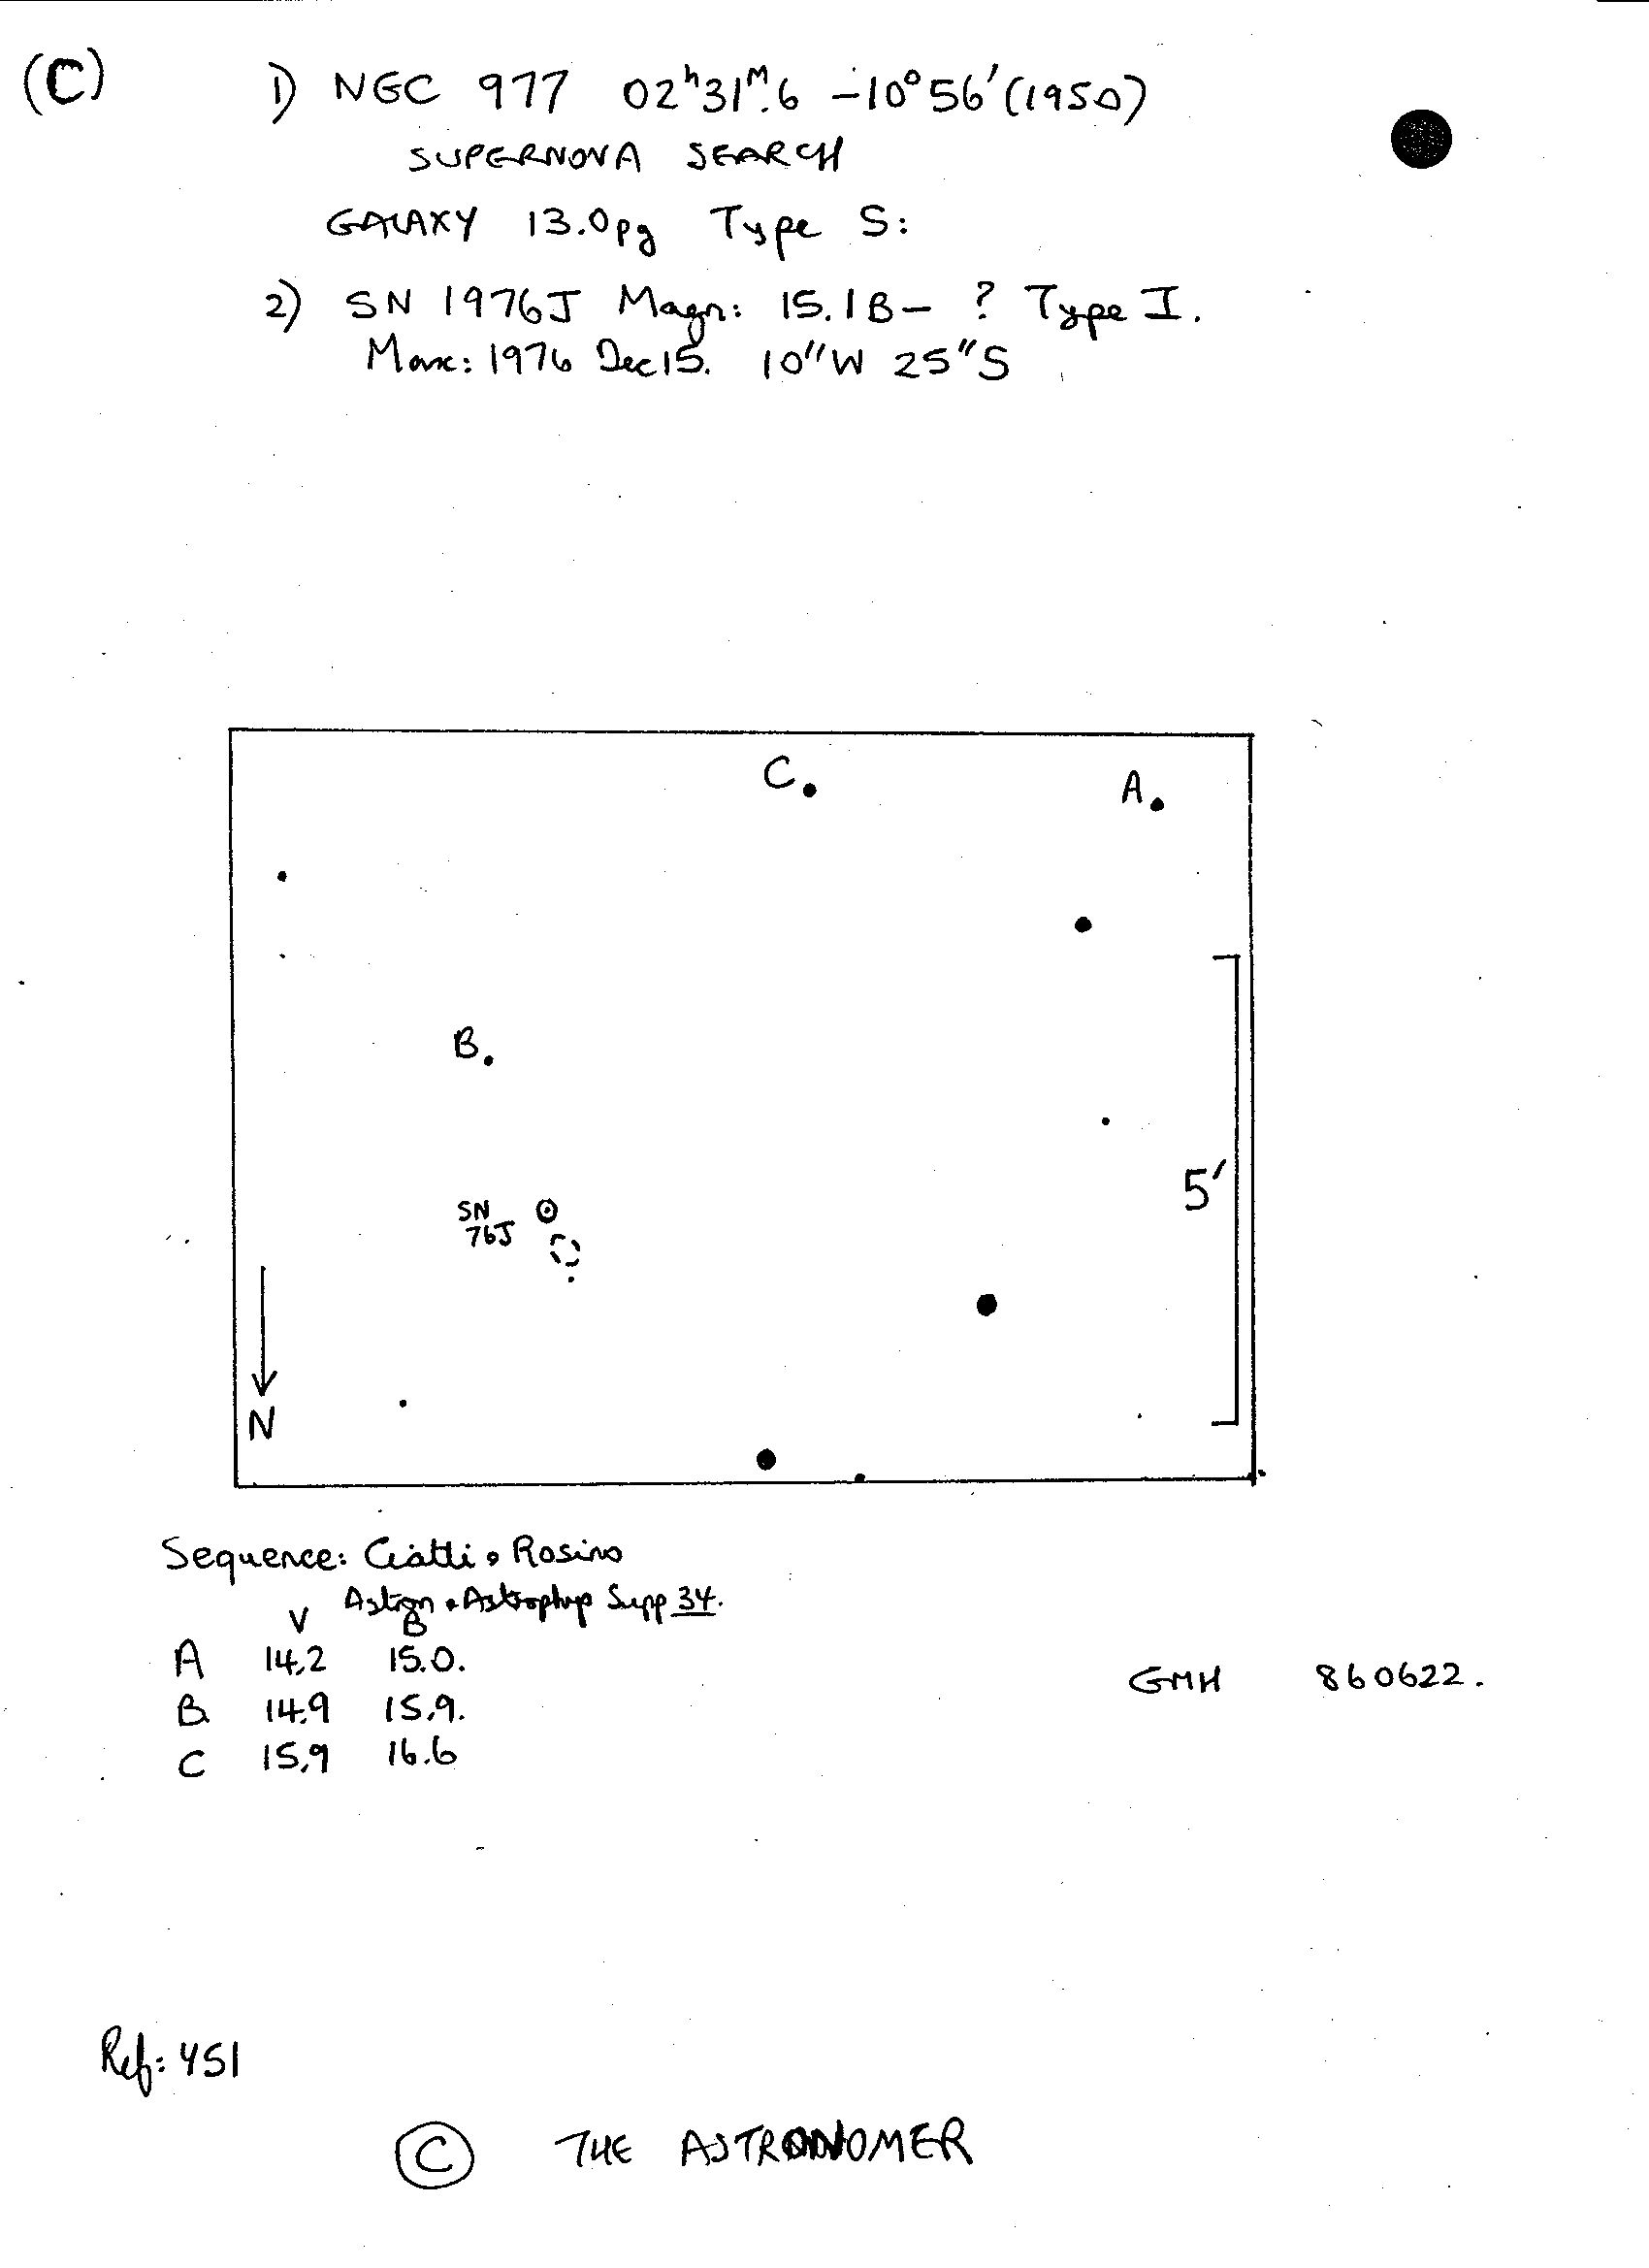 (C)
1) NGC 977 02ʰ31ᴹ.6 -10°56′(1950)
SUPERNOVA SEARCH
GALAXY 13.0pg Type S:
2) SN 1976J Magn: 15.1B- ? Type I.
Max: 1976 Dec 15. 10″W 25″S
C.
A.
B.
5′
SN
76J
N
Sequence: Ciatti & Rosino
Astron & Astrophys Supp 34.
V B
A 14.2 15.0.
B 14.9 15.9.
C 15.9 16.6
GMH 860622.
Ref: 451
© THE ASTRONOMER